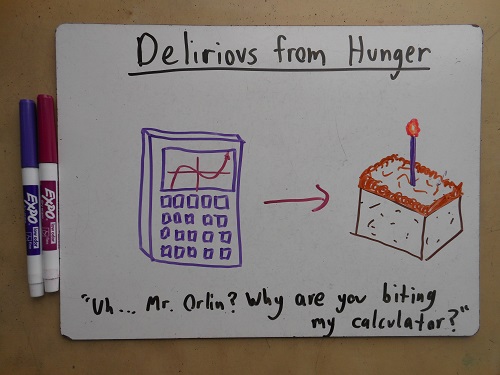 Delirious from Hunger
EXPO
EXPO
"Uh... Mr. Orlin? Why are you biting
my calculator?"